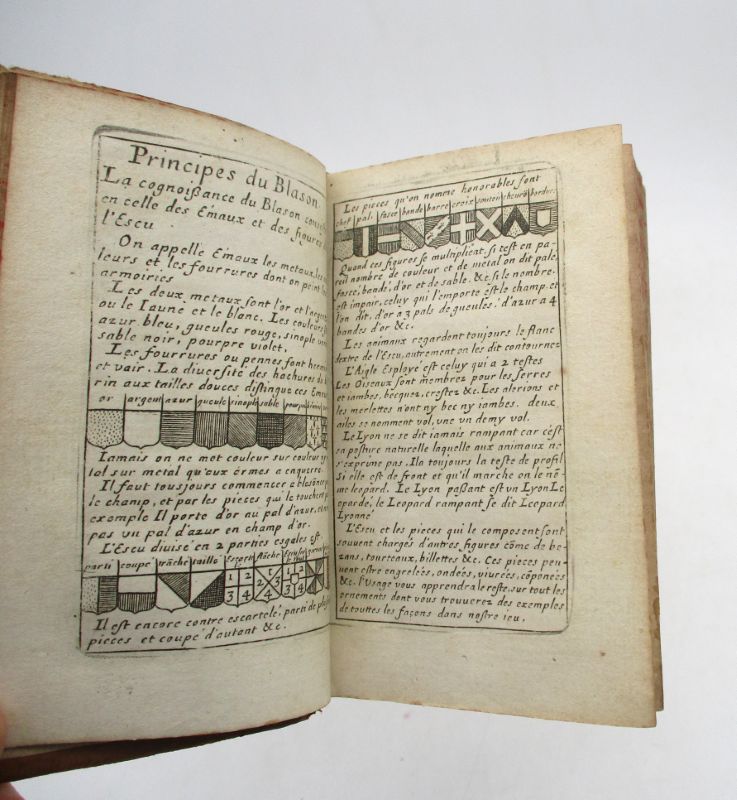 Principes du Blason
La cognoißance du Blason
en celle des Émaux et des figures
l'Escu
On appelle Émaux les metaux,
leurs et les fourrures dont on peint
armoiries
Les deux metaux sont l'or et l'argent
ou le Iaune et le blanc. Les couleurs
azur bleu, gueules rouge, sinople
sable noir, pourpre violet,
Les fourrures ou pennes sont
et vair. La diversité des hachures
rin aux tailles douces distingue ces
or argent azur gueule sinople sable
Iamais on ne met couleur sur couleur
tal sur metal qu'aux armes a enquerre
Il faut tousjours commencer a blasonner
le champ, et par les pieces qui le touchent
exemple Il porte d'or au pal d'azur,
pas un pal d'azur en champ d'or.
L'Escu divisé en 2 parties esgales est
parti coupé träché taillé
1 2 3 4 1 2 3 4
Il est encore contre escartelé, parti de
pieces et coupé d'autant &c.
Les pieces qu'on nomme honorables sont
chef pal fasce bande barre croix sautoir cheurõ bordure
Quand ces figures se multiplicät, si test en pa-
reil nombre de couleur et de metal on dit palé,
fascé, bandé, d'or et de sable. &c. si le nombre
est impair, celuy qui l'emporte est le champ, et
l'on dit. d'or a 3 pals de gueules: d'azur a 4
bandes d'or &c.
Les animaux regardent toujours le flanc
dextre de l'Escu, autrement on les dit contournez
L'Aigle Esployé est celuy qui a 2 testes
Les Oiseaux sont membrez pour les serres
et iambes, becquez, crestez &c. Les alerions et
les merlettes n'ont ny bec ny iambes. deux
ailes se nomment vol, une vn demy vol.
Le Lyon ne se dit iamais rampant car c'est
sa posture naturelle laquelle aux animaux ne
s'exprime pas. Il a toujours la teste de profil
Si elle est de front et qu'il marche on le nõ-
me leopard. Le Lyon paßant est vn Lyon Le
opardé, le Leopard rampant se dit Leopard
Lyonné
L'Escu et les pieces qui le composent sont
souvent chargés d'autres figures cõme de be-
zans, tourteaux, billettes &c. Ces pieces peu-
vent estre engrelées, ondées, viurées, cõponées
&c. l'Usage vous apprendra le reste, sur tout les
ornements dont vous trouuerez des exemples
de touttes les façons dans nostre ieu.